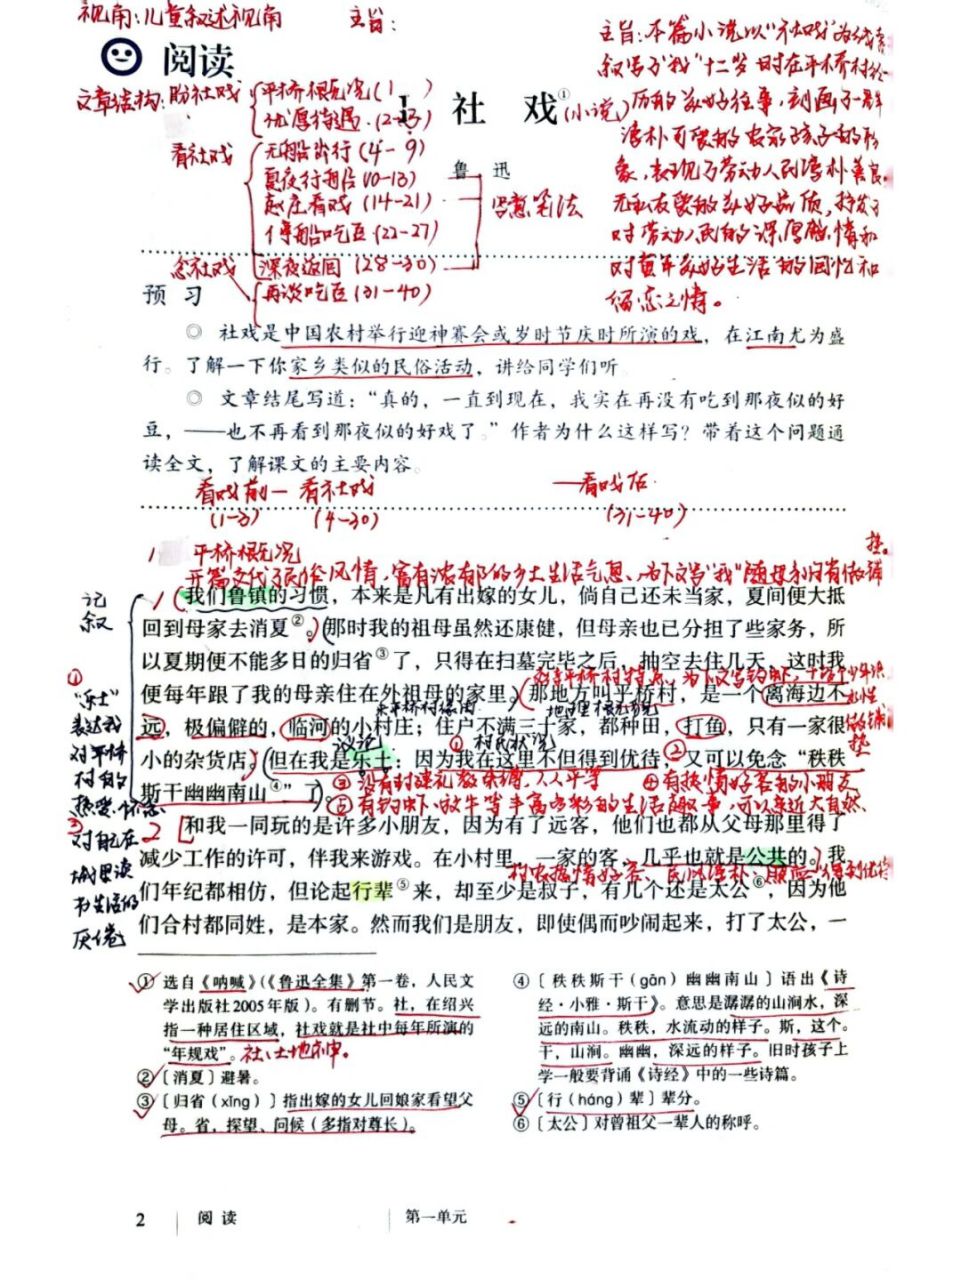 视角:儿童叙述视角
主旨:
主旨:本篇小说以“社戏”为线索
叙写了“我”十二岁时在平桥村经
历的美好往事,刻画了一群
淳朴可爱的农家孩子的形
象,表现了劳动人民淳朴善良
无私友爱的美好品质,抒发了
对劳动人民的深厚感情和
对童年美好生活的回忆和
留恋之情。
阅读
文章结构:盼社戏
平桥概况(1)
优厚待遇(2-3)
看社戏
无船出行(4-9)
夏夜行船(10-13)
赶庄看戏(14-21)
停船吃豆(22-27)
深夜返回(28-30)
写意笔法
念社戏
再谈吃豆(31-40)
1 社戏①
(小说)
鲁迅
预习
◎ 社戏是中国农村举行迎神赛会或岁时节庆时所演的戏,在江南尤为盛
行。了解一下你家乡类似的民俗活动,讲给同学们听
◎ 文章结尾写道:“真的,一直到现在,我实在再没有吃到那夜似的好
豆,——也不再看到那夜似的好戏了。”作者为什么这样写?带着这个问题通
读全文,了解课文的主要内容。
看戏前— 看社戏 —看戏后
(1-3) (4-30) (31-40)
1 平桥概况
开篇交代了民俗风情,富有浓郁的乡土生活气息、为下文写“我”随母亲归省做铺
垫。
记叙
我们鲁镇的习惯,本来是凡有出嫁的女儿,倘自己还未当家,夏间便大抵
回到母家去消夏②。那时我的祖母虽然还康健,但母亲也已分担了些家务,所
以夏期便不能多日的归省③了,只得在扫墓完毕之后,抽空去住几天,这时我
便每年跟了我的母亲住在外祖母的家里。那地方叫平桥村,是一个离海边不
远,极偏僻的,临河的小村庄;住户不满三十家,都种田,打鱼,只有一家很
议论
①村民状况
小的杂货店。但在我是乐土:因为我在这里不但得到优待,②又可以免念“秩秩
③没有封建礼数束缚,人人平等 ④有热情好客的小朋友
斯干幽幽南山④”了。
⑤有钓虾、放牛等丰富多彩的生活趣事,可以亲近大自然
和我一同玩的是许多小朋友,因为有了远客,他们也都从父母那里得了
减少工作的许可,伴我来游戏。在小村里,一家的客,几乎也就是公共的。我
们年纪都相仿,但论起行辈⑤来,却至少是叔子,有几个还是太公⑥,因为他
们合村都同姓,是本家。然而我们是朋友,即使偶而吵闹起来,打了太公,一
①
“乐土”
表达我
对平桥
村的
热爱、怀念
对自己在
城里读
书生活的
厌倦
① 选自《呐喊》(《鲁迅全集》第一卷,人民文
学出版社2005年版)。有删节。社,在绍兴
指一种居住区域,社戏就是社中每年所演的
“年规戏”。社:土地神。
②〔消夏〕避暑。
③〔归省(xǐng)〕指出嫁的女儿回娘家看望父
母。省,探望、问候(多指对尊长)。
④〔秩秩斯干(gān)幽幽南山〕语出《诗
经·小雅·斯干》。意思是潺潺的山涧水,深
远的南山。秩秩,水流动的样子。斯,这个。
干,山涧。幽幽,深远的样子。旧时孩子上
学一般要背诵《诗经》中的一些诗篇。
⑤〔行(háng)辈〕辈分。
⑥〔太公〕对曾祖父一辈人的称呼。
2 阅读 第一单元